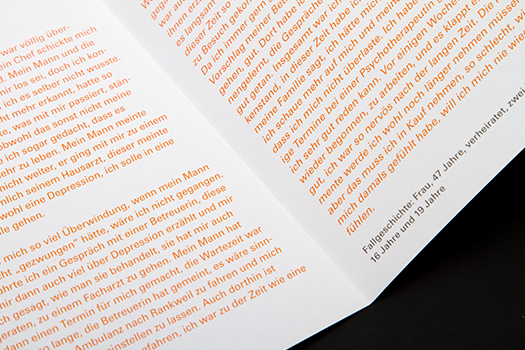 war völlig über-
ein Chef schickte mich
Mein Mann und die
mir los sei, doch ich kon-
ich es selber nicht wusste.
nicht mehr erkannt, hatte so
te, was mit mir passiert, stän-
obwohl das sonst nicht meine
e ich sogar gedacht, dass es
ehr zu leben. Mein Mann meinte
nicht weiter, er ging mit mir zu einem
mlich seinem Hausarzt, dieser meinte
wohl eine Depression, ich solle in eine
lle gehen.
mich so viel Überwindung, wenn mein Mann
cht „gezwungen“ hätte, wäre ich nicht gegangen.
ührte ich ein Gespräch mit einer Betreuerin, diese
mir dann auch viel über Depression erzählt und mir
ch gesagt, wie man sie behandelt, sie hat mir auch
geraten, zu einem Facharzt zu gehen. Mein Mann hat
dann einen Termin für mich gemacht, die Wartezeit war
so lange, die Betreuerin hat gemeint, es wäre sinn-
Ambulanz nach Rankweil zu fahren und mich
einstellen zu lassen. Auch dorthin ist
efahren, ich war zu der Zeit wie eine
ihnen erzä
es langsam
dieser Zeit so
zu Besuch gekom
Da ich immer gern
Vorschlag meiner Be
gehen, gut. Dort habe ich
nengelernt, die Gespräche
gut getan. Insgesamt war ich
kenstand, in dieser Zeit habe ich
meine Familie sagt, ich hätte mich
ich schaue mehr auf mich und meine
dass ich mich nicht überlaste. Ich habe
ige Termine bei einer Psychotherapeutin
sehr gut reden kann. Vor einigen Wochen
wieder begonnen, zu arbeiten, und es klappt e
gut, ich war so nervös nach der langen Zeit. Die M
mente werde ich wohl noch länger nehmen müssen
aber das muss ich in Kauf nehmen, so schlecht, w
mich damals gefühlt habe, will ich mich nie wie
fühlen.
Fallgeschichte: Frau, 47 Jahre, verheiratet, zwei
16 Jahre und 19 Jahre